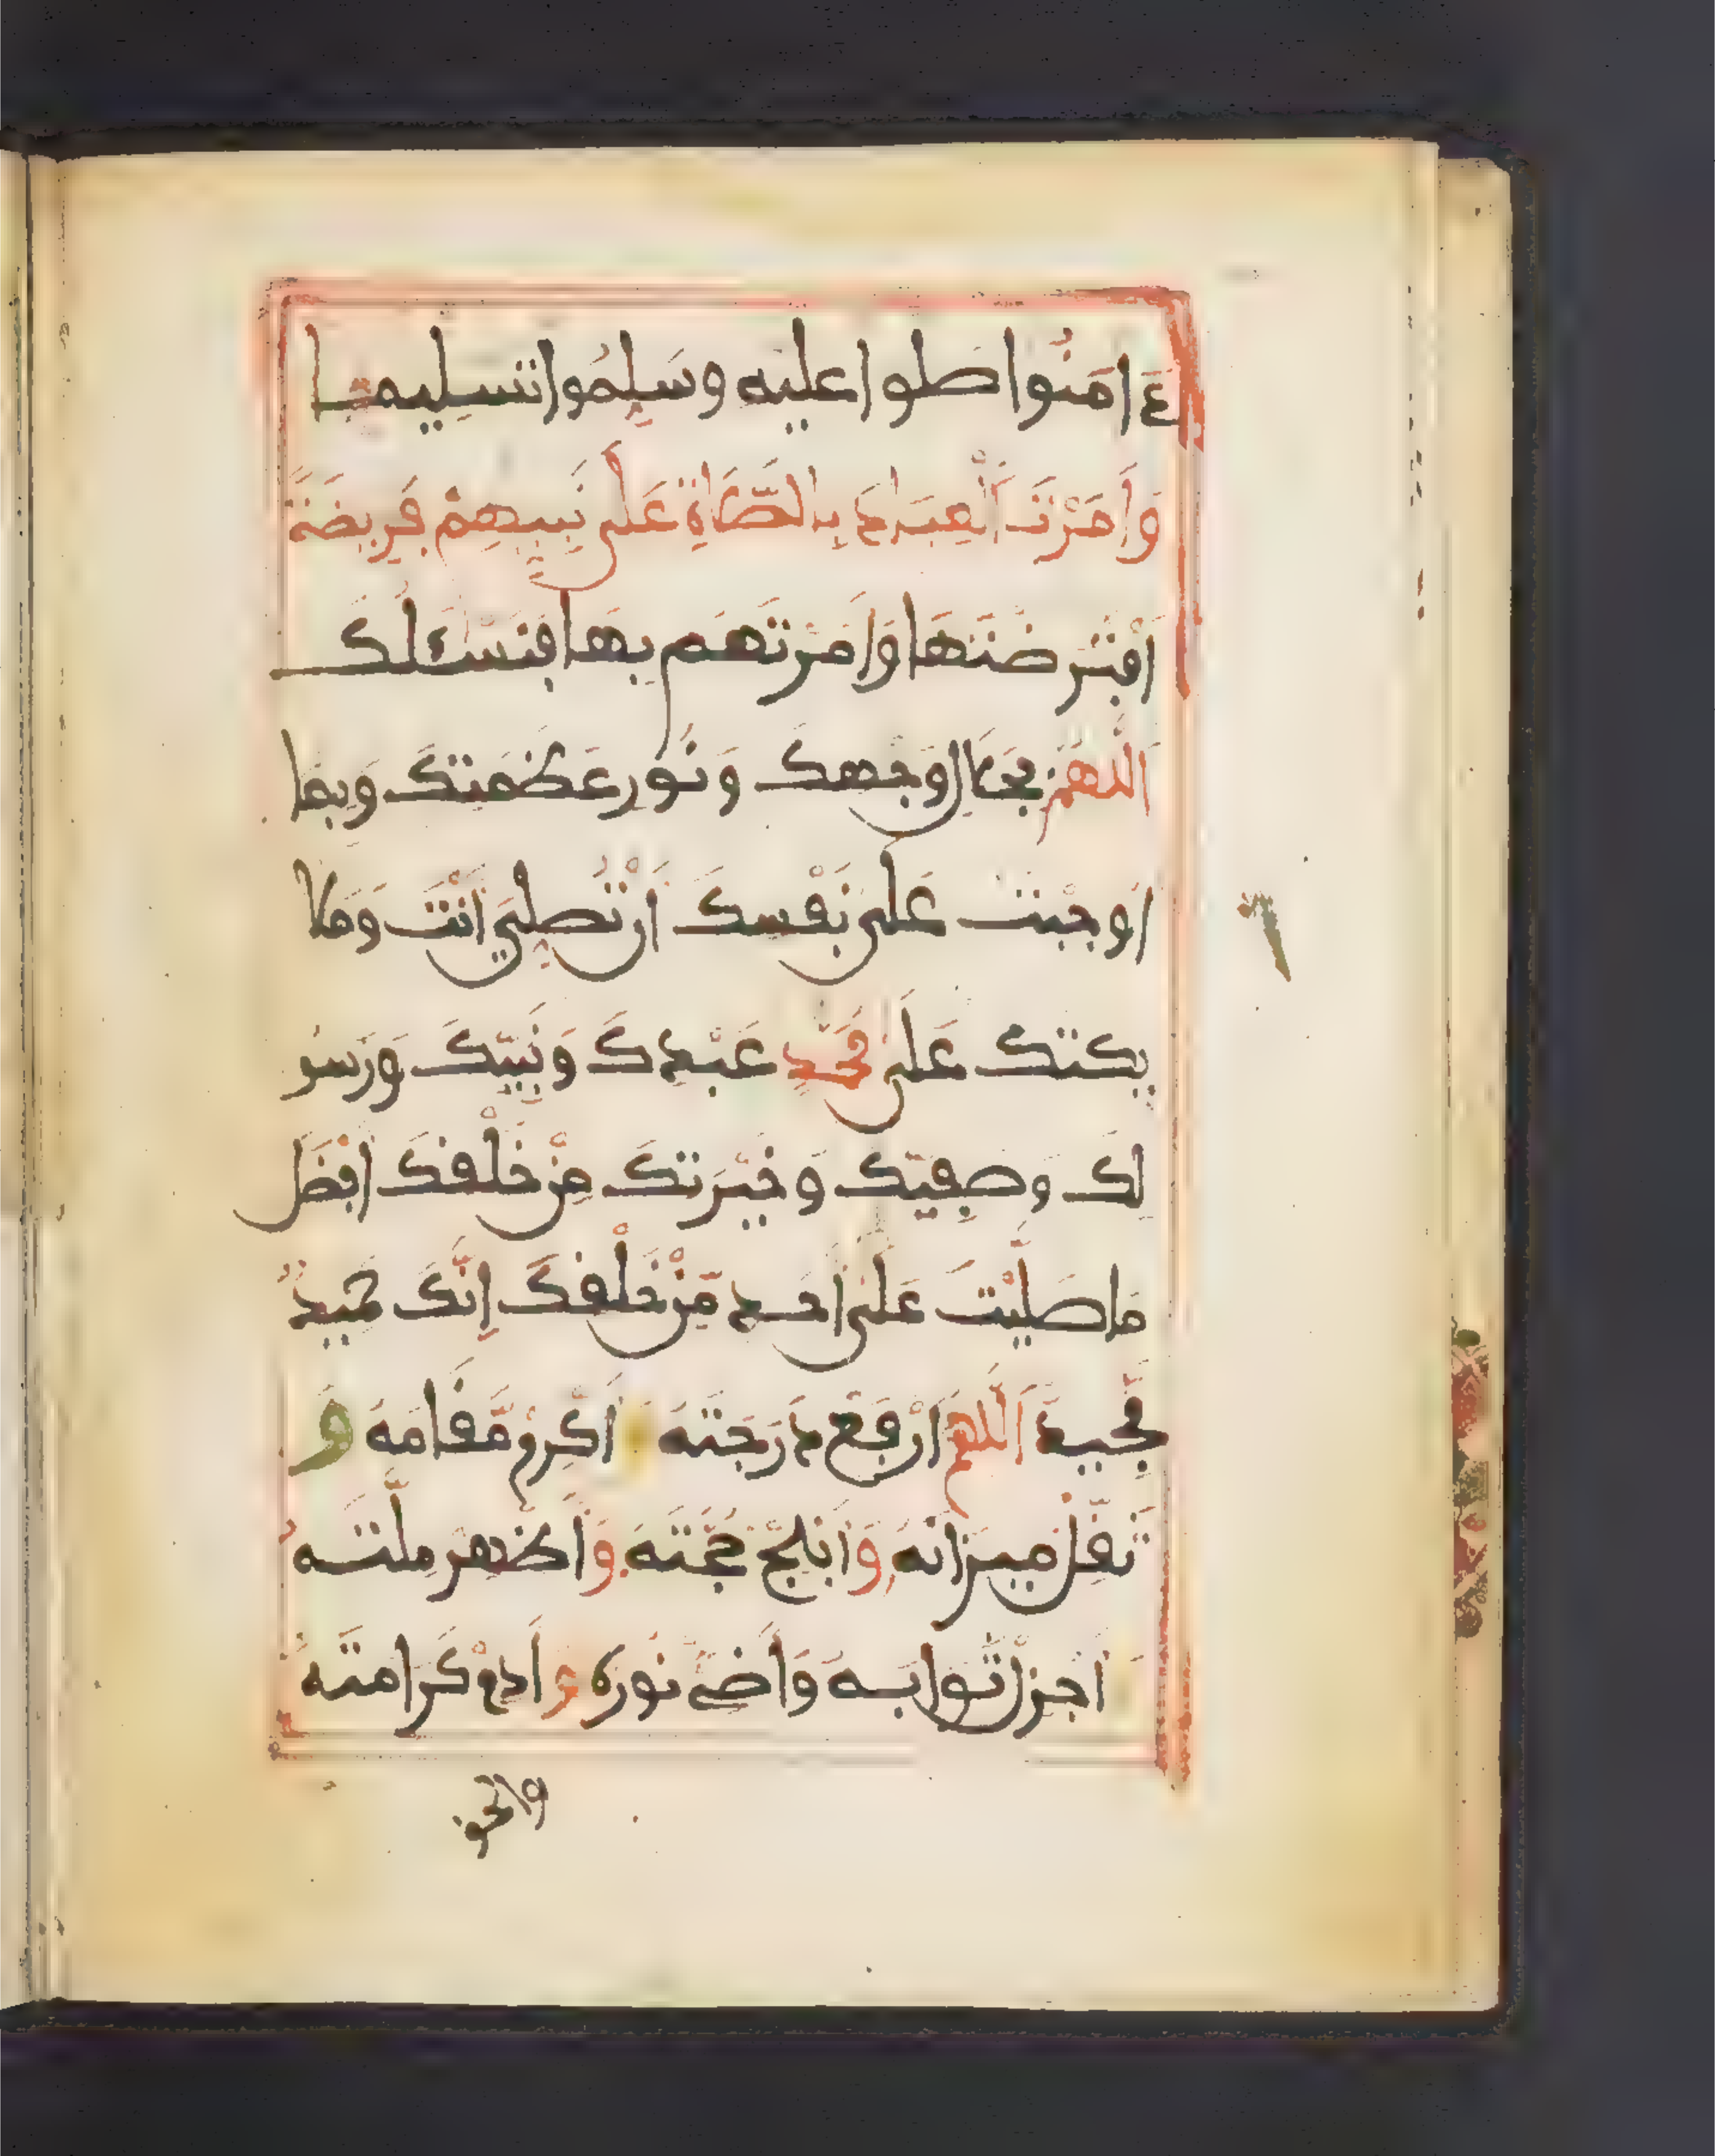 ءامنوا صلوا عليه وسلموا تسليما
وَأَمَرْتَ ٱلْعِبَادَ بِالصَّلَاةِ عَلَى نَبِيِّهِمْ فَرِيضَةً
اَفْتَرَضْتَهَا وَأَمَرْتَهُم بِهَا فَنَسْـَٔلُكَ
اللهم بجلال وجهك ونور عظمتك وبما
اوجبت على نفسك ان تصلي انت وملا
يكتك على محمد عبدك ونبيك ورسو
لك وصفيك وخيرتك من خلقك افضل
ما صليت على احد من خلقك إنك حميد
مجيد اللهم ارفع درجته اكرم مقامه و
ثقل ميزانه وابلج حجته واظهر ملته
اجزل ثوابه وأضئ نوره وأدم كرامته
والحق